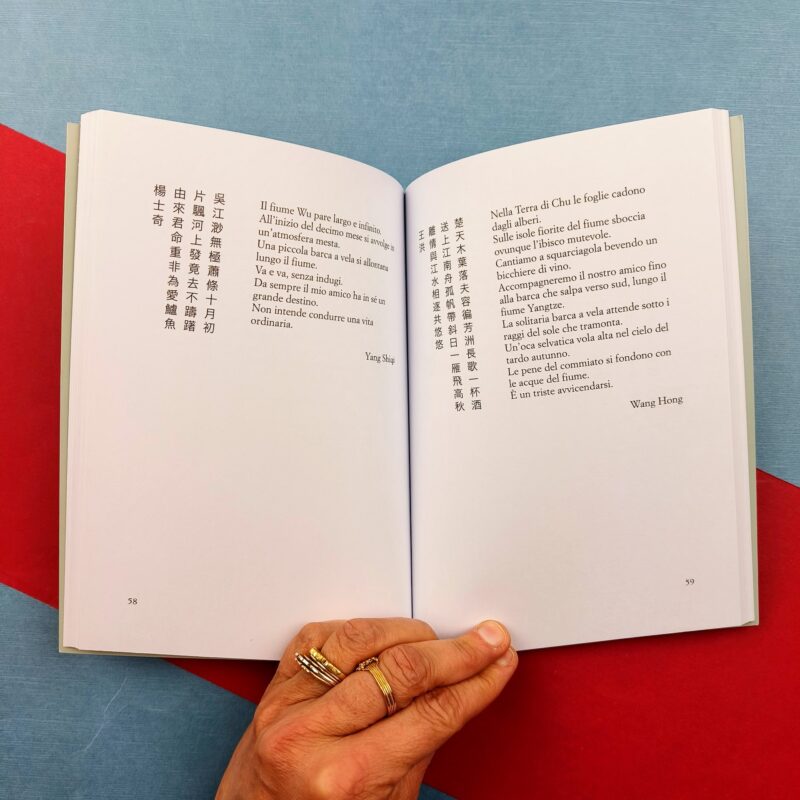 吳江渺無極蕭條十月初
片颿河上發竟去不躊躇
由來君命重非為愛鱸魚
楊士奇
Il fiume Wu pare largo e infinito.
All'inizio del decimo mese si avvolge in
un'atmosfera mesta.
Una piccola barca a vela si allontana
lungo il fiume.
Va e va, senza indugi.
Da sempre il mio amico ha in sé un
grande destino.
Non intende condurre una vita
ordinaria.
Yang Shiqi
58
楚天木葉落夫容徧芳洲長歌一杯酒
送上江南舟孤帆帶斜日一雁飛高秋
離情與江水相逐共悠悠
王洪
Nella Terra di Chu le foglie cadono
dagli alberi.
Sulle isole fiorite del fiume sboccia
ovunque l'ibisco mutevole.
Cantiamo a squarciagola bevendo un
bicchiere di vino.
Accompagneremo il nostro amico fino
alla barca che salpa verso sud, lungo il
fiume Yangtze.
La solitaria barca a vela attende sotto i
raggi del sole che tramonta.
Un'oca selvatica vola alta nel cielo del
tardo autunno.
Le pene del commiato si fondono con
le acque del fiume.
È un triste avvicendarsi.
Wang Hong
59